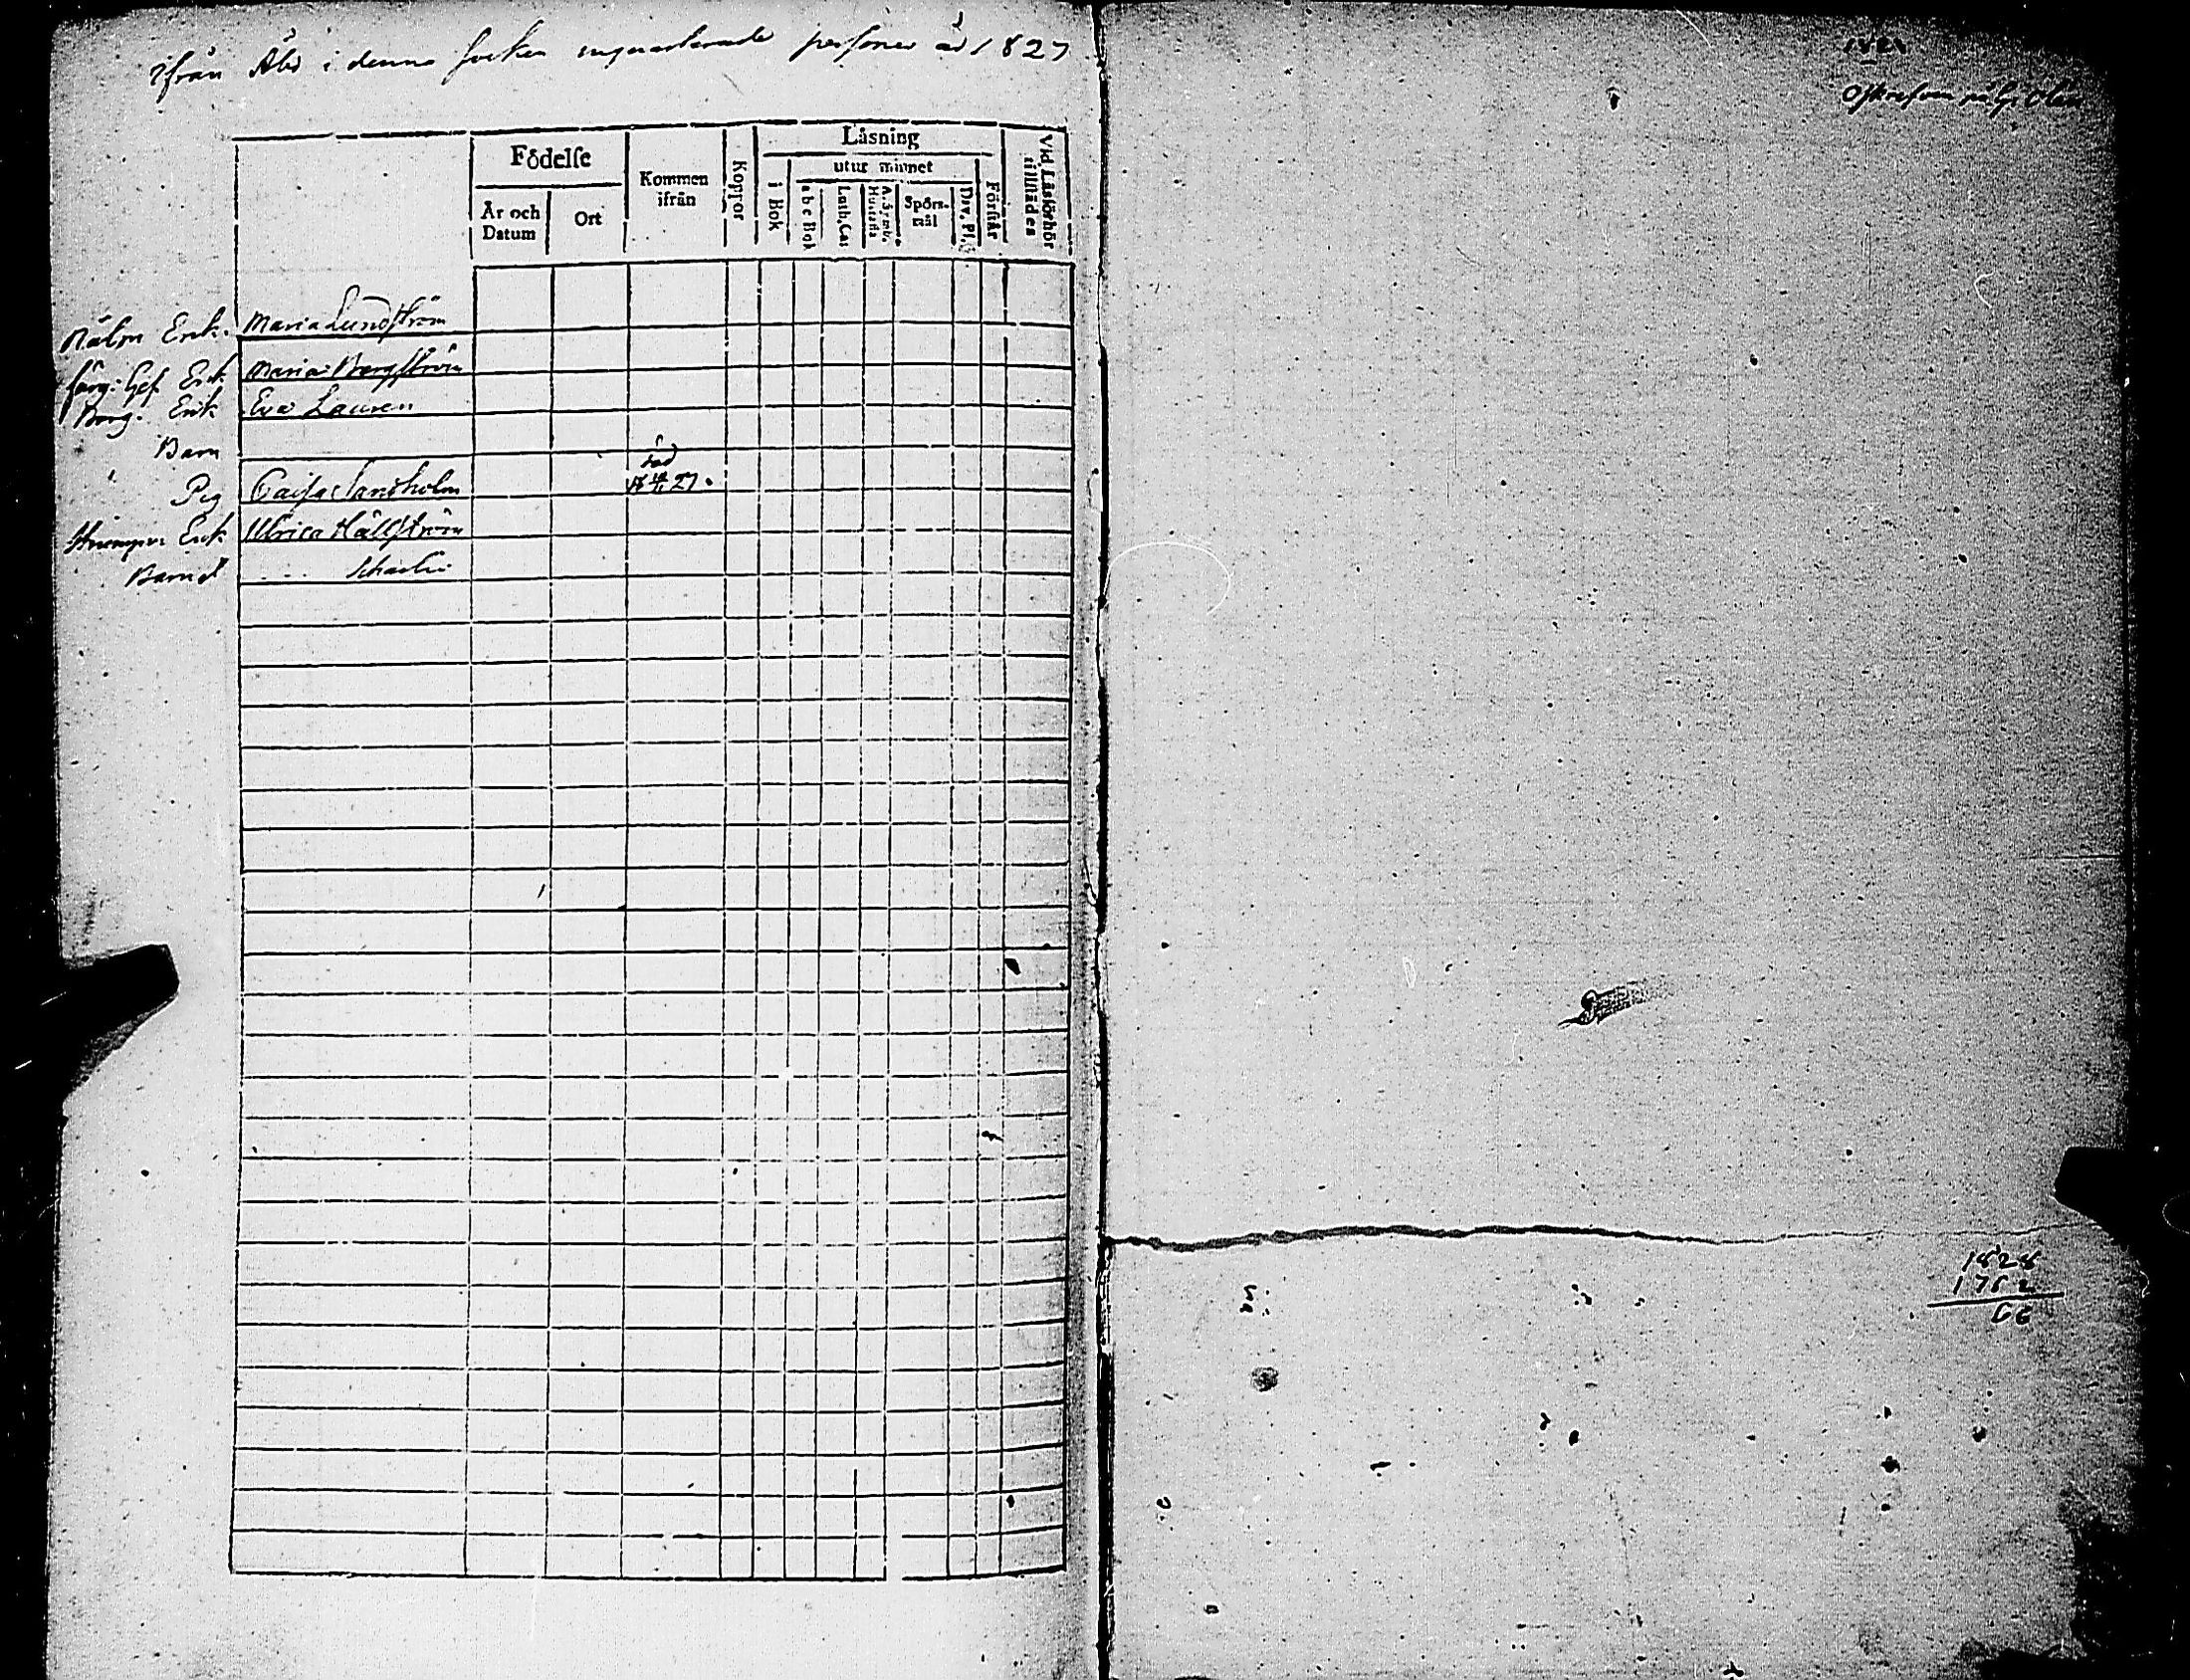 ifrån Åbo i denna socken inqvarterade personer år 1827
Födelse
År och Datum
Ort
Kommen ifrån
Koppor
Läsning
utur minnet
i Bok
a b c Bok
Luth. Cat
A. Symb. Hustafla
Spörs-mål
Dav. Ps.
Förstår
Vid Läsförhör tillstädes
Målm Enk. Maria Lundström
färg: Gef Enk Maria Bergström
Borg. Enk Eva Lauren
Barn
Pig Caisa Sandholm död 27.
Enk Ulrica Hällström
Barnet .... Scharlin
1828
1762
66